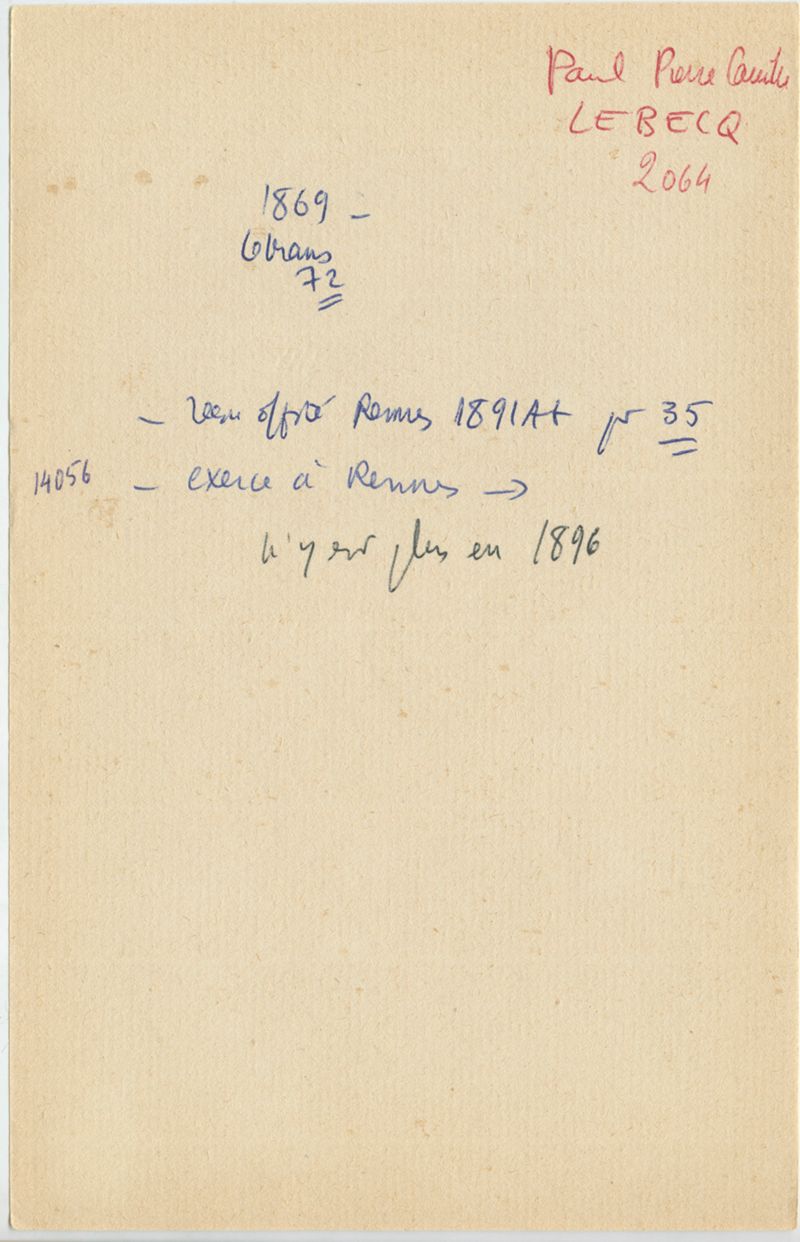 Paul Pierre Camille
LEBECQ
2064
1869 -
Orléans
72
- reçu offic Rennes 1891 A+ pr 35
14056 - exerce à Rennes →
n'y est plus en 1896